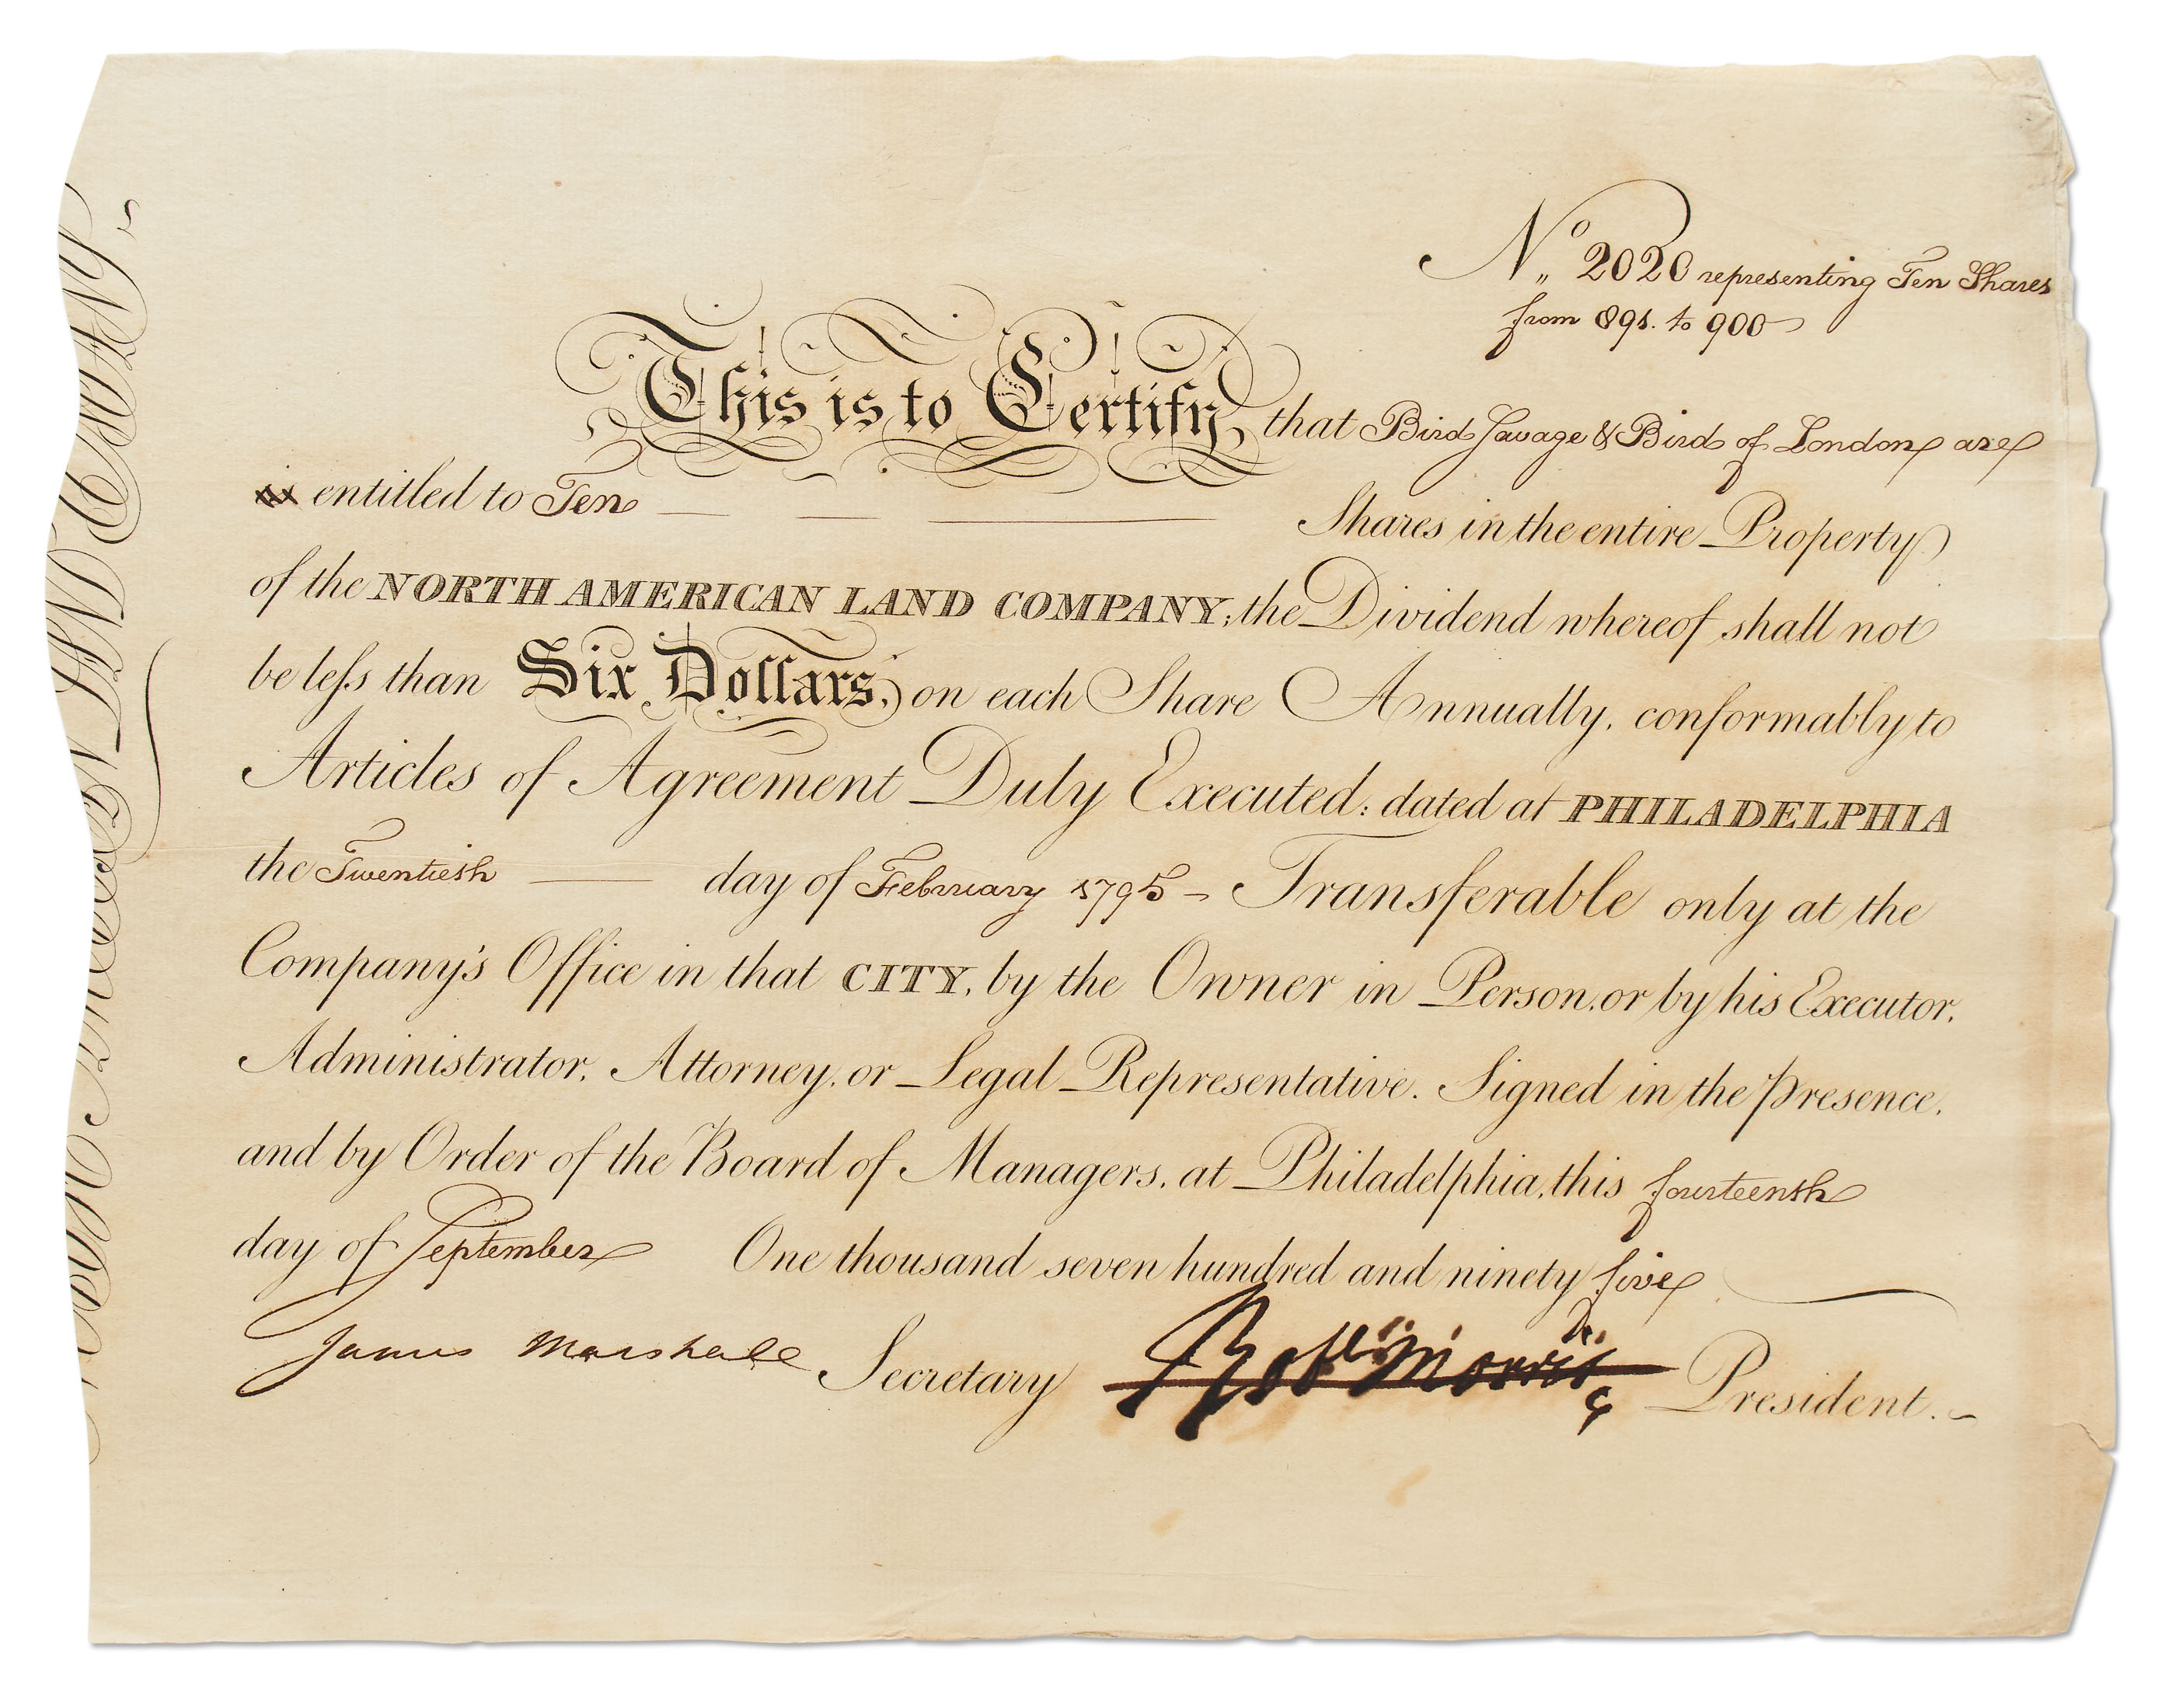 No. 2020 representing Ten Shares
from 891. to 900
This is to Certify, that Bird Savage & Bird of London are
is entitled to Ten Shares in the entire Property
of the NORTH AMERICAN LAND COMPANY; the Dividend whereof shall not
be leſs than Six Dollars, on each Share Annually, conformably to
Articles of Agreement Duly Executed: dated at PHILADELPHIA
the Twentieth day of February 1795 - Transferable only at the
Company's Office in that CITY, by the Owner in Person, or by his Executor,
Administrator, Attorney, or Legal Representative. Signed in the Presence,
and by Order of the Board of Managers, at Philadelphia, this fourteenth
day of September One thousand seven hundred and ninety five
James Marshall Secretary Robt Morris President.